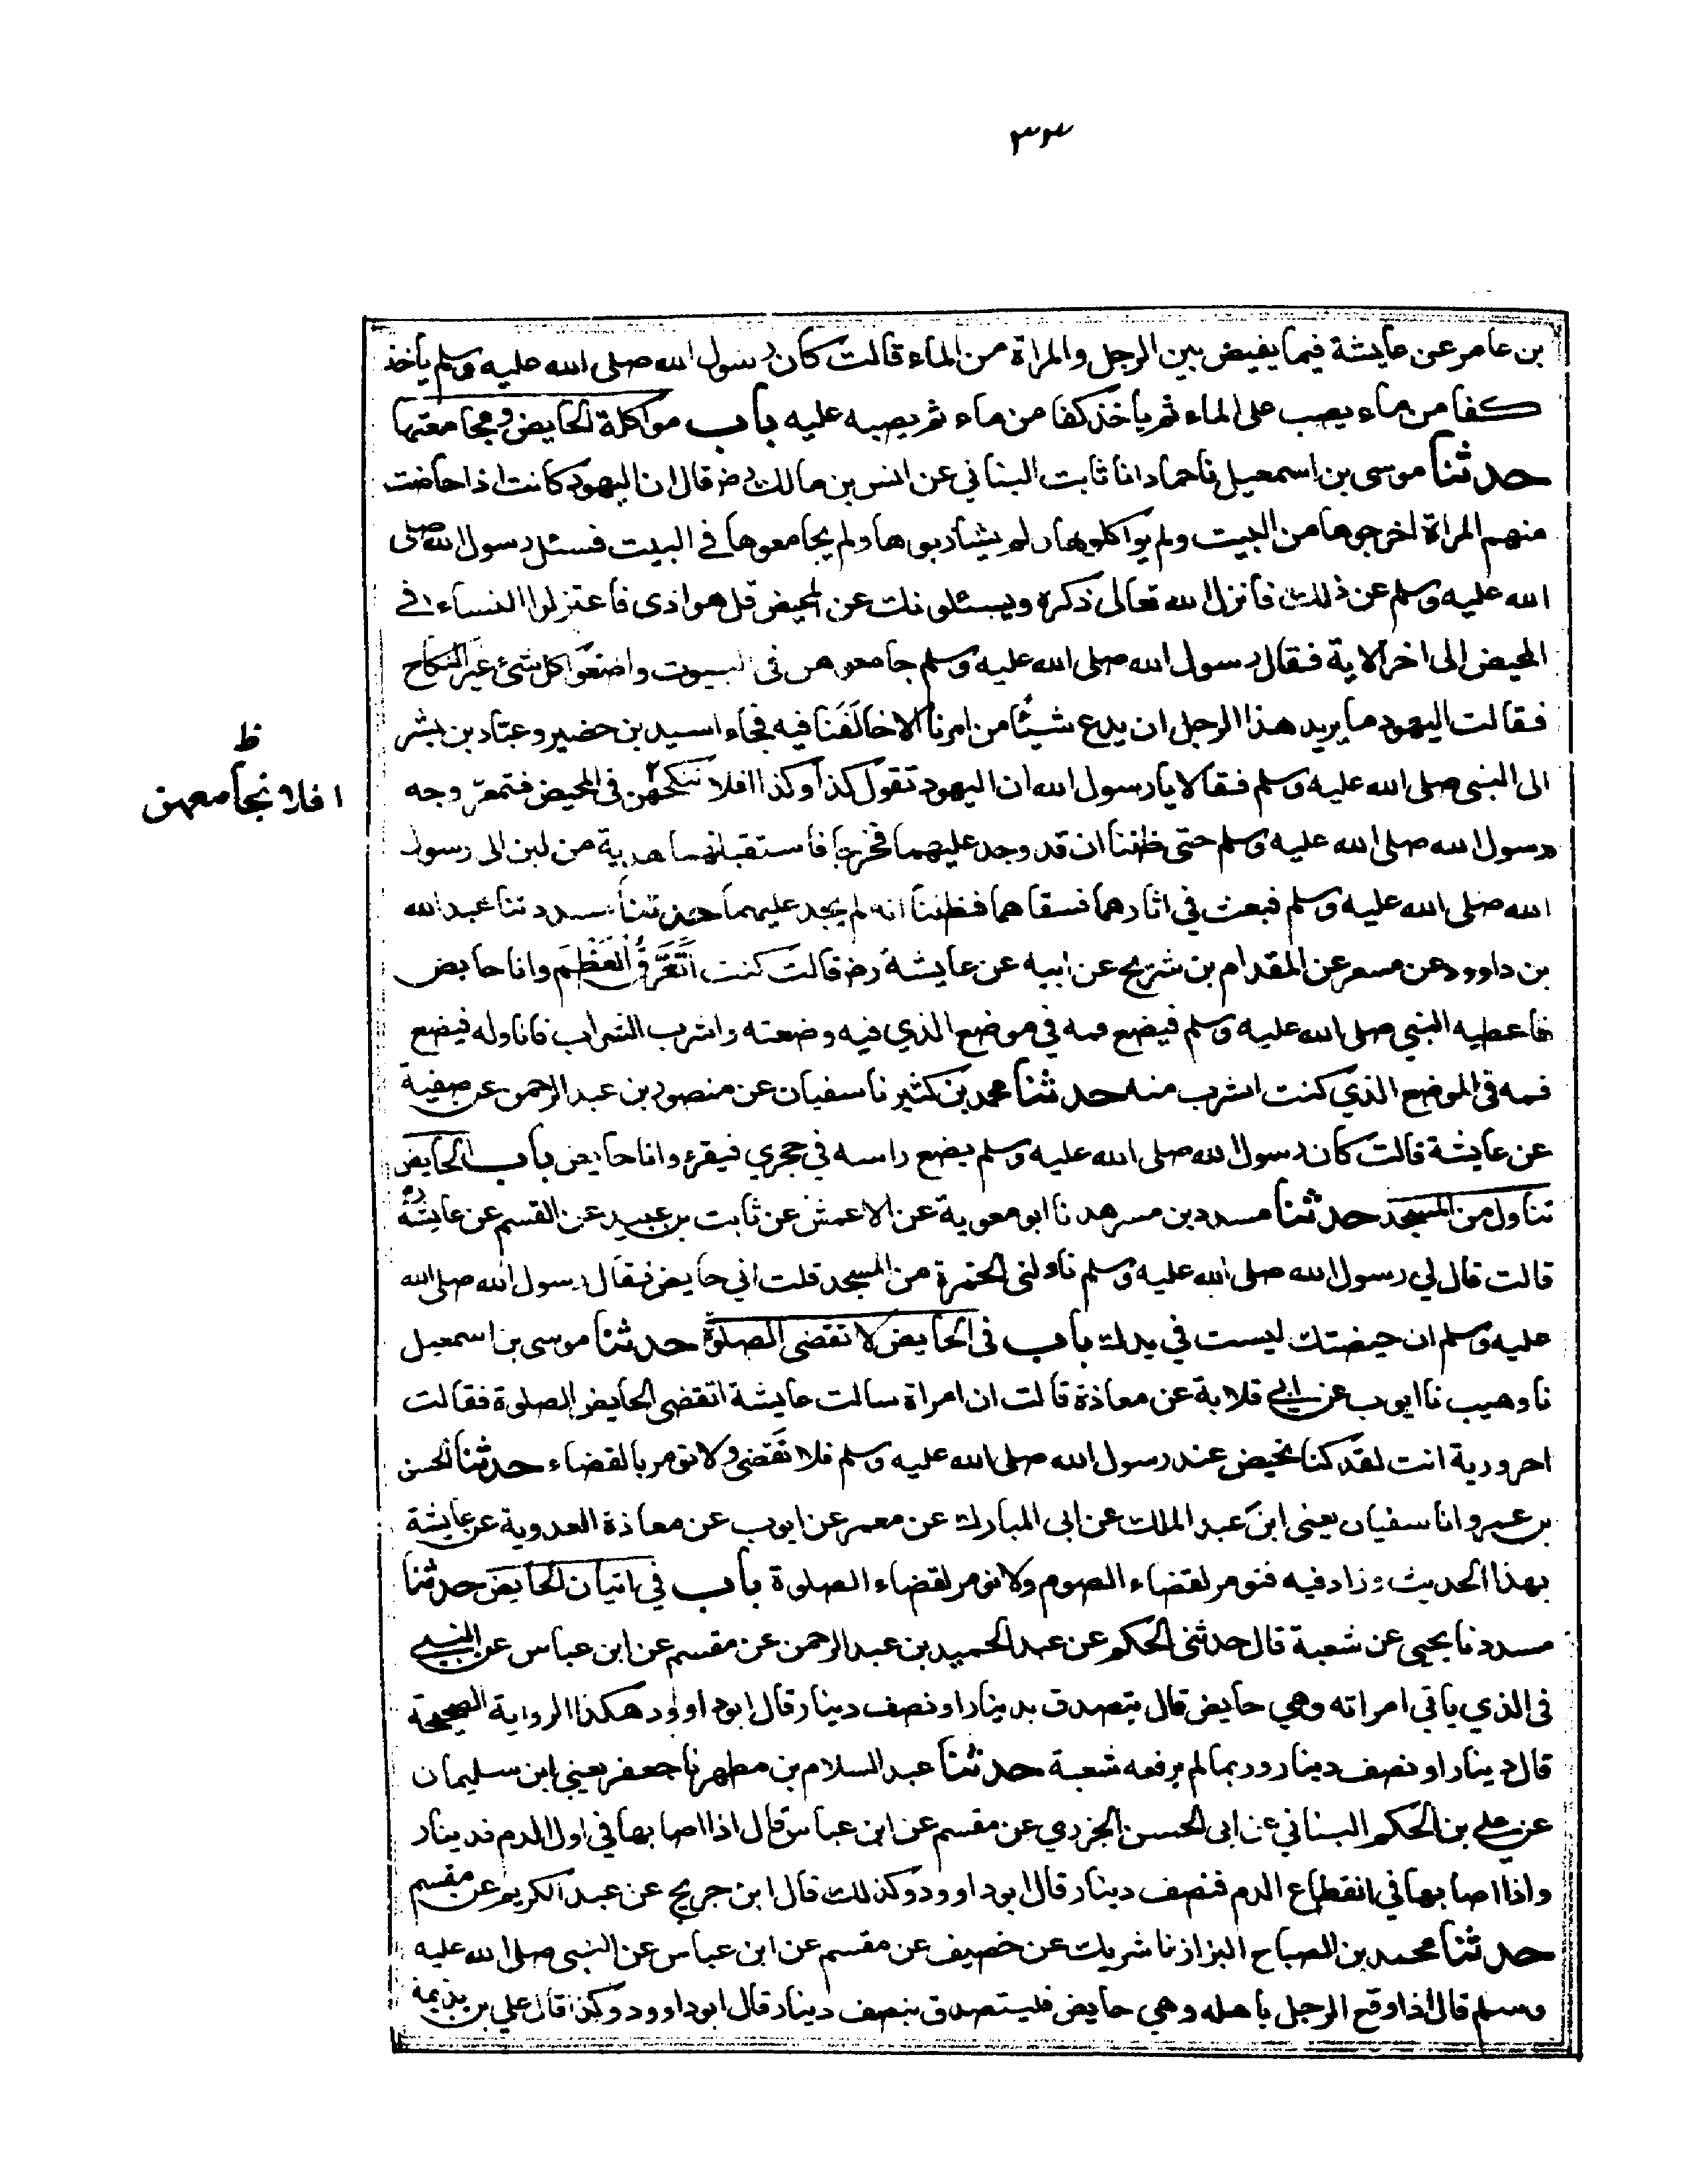 ٣٤
بن عامر عن عايشة فيما يفيض بين الرجل والمراة من الماء قالت كان رسول الله صلى الله عليه وسلم يأخذ
كفا من ماء يصب على الماء ثم ياخذ كفا من ماء ثم يصبه عليه باب مواكلة الحايض ومجامعتها
حدثنا موسى بن اسمعيل نا حماد انا ثابت البناني عن انس بن مالك رض قال ان اليهود كانت اذا حاضت
منهم المراة اخرجوها من البيت ولم يواكلوها ولم يشاربوها ولم يجامعوها في البيت فسئل رسول الله صلى
الله عليه وسلم عن ذلك فانزل الله تعالى ذكره ويسئلونك عن المحيض قل هو اذى فاعتزلوا النساء في
المحيض الى اخر الاية فقال رسول الله صلى الله عليه وسلم جامعوهن فى البيوت واصنعوا كل شئ غير النكاح
فقالت اليهود ما يريد هذا الرجل ان يدع شيئا من امرنا الا خالفنا فيه فجاء اسيد بن حضير وعبّاد بن بشر
الى النبى صلى الله عليه وسلم فقالا يا رسول الله ان اليهود تقول كذا وكذا افلا ننكحهن فى المحيض فتمعّر وجه
ظ
افلا نجامعهن
رسول الله صلى الله عليه وسلم حتى ظننا ان قد وجد عليهما فخرجا فاستقبلتهما هدية من لبن الى رسول
الله صلى الله عليه وسلم فبعث في اثارهما فسقاهما فظننا انه لم يجد عليهما حدثنا مسدد ثنا عبد الله
بن داوود عن مسعر عن المقدام بن شريح عن ابيه عن عايشة رض قالت كنت اتعرّق العظم وانا حايض
فاعطيه النبي صلى الله عليه وسلم فيضع فمه في موضع الذي فيه وضعته واشرب الشراب فاناوله فيضع
فمه فى الموضع الذي كنت اشرب منه حدثنا محمد بن كثير نا سفيان عن منصور بن عبد الرحمن عن صفية
عن عايشة قالت كان رسول الله صلى الله عليه وسلم يضع راسه في حجري فيقرء وانا حايض باب الحايض
تناول من المسجد حدثنا مسدد بن مسرهد نا ابو معوية عن الاعمش عن ثابت بن عبيد عن القسم عن عايشة رض
قالت قال لي رسول الله صلى الله عليه وسلم ناولنى الخمرة من المسجد قلت اني حايض فقال رسول الله صلى الله
عليه وسلم ان حيضتك ليست في يدك باب فى الحايض لا تقضى الصلوة حدثنا موسى بن اسمعيل
نا وهيب نا ايوب عن ابي قلابة عن معاذة قالت ان امراة سالت عايشة اتقضى الحايض الصلوة فقالت
احرورية انت لقد كنا نحيض عند رسول الله صلى الله عليه وسلم فلا نقضى ولا نومر بالقضاء حدثنا الحسن
بن عمرو انا سفيان يعنى ابن عبد الملك عن ابى المبارك عن معمر عن ايوب عن معاذة العدوية عن عايشة
بهذا الحديث وزاد فيه فنومر لقضاء الصوم ولا نومر لقضاء الصلوة باب في اتيان الحايض حدثنا
مسدد نا يحيى عن شعبة قال حدثنى الحكم عن عبد الحميد بن عبد الرحمن عن مقسم عن ابن عباس عن النبي
فى الذي ياتي امراته وهي حايض قال يتصدق بدينار او نصف دينار قال ابو داوود هكذا الرواية الصحيحة
قال دينار او نصف دينار وربما لم يرفعه شعبة حدثنا عبد السلام بن مطهر نا جعفر يعني ابن سليمان
عن علي بن الحكم البناني عن ابى الحسن الجزري عن مقسم عن ابن عباس قال اذا اصابها في اول الدم فدينار
واذا اصابها في انقطاع الدم فنصف دينار قال ابو داوود وكذلك قال ابن جريج عن عبد الكريم عن مقسم
حدثنا محمد بن الصباح البزاز نا شريك عن خصيف عن مقسم عن ابن عباس عن النبى صلى الله عليه
وسلم قال اذا وقع الرجل باهله وهي حايض فليتصدق بنصف دينار قال ابو داوود وكذا قال علي بن بذيمة